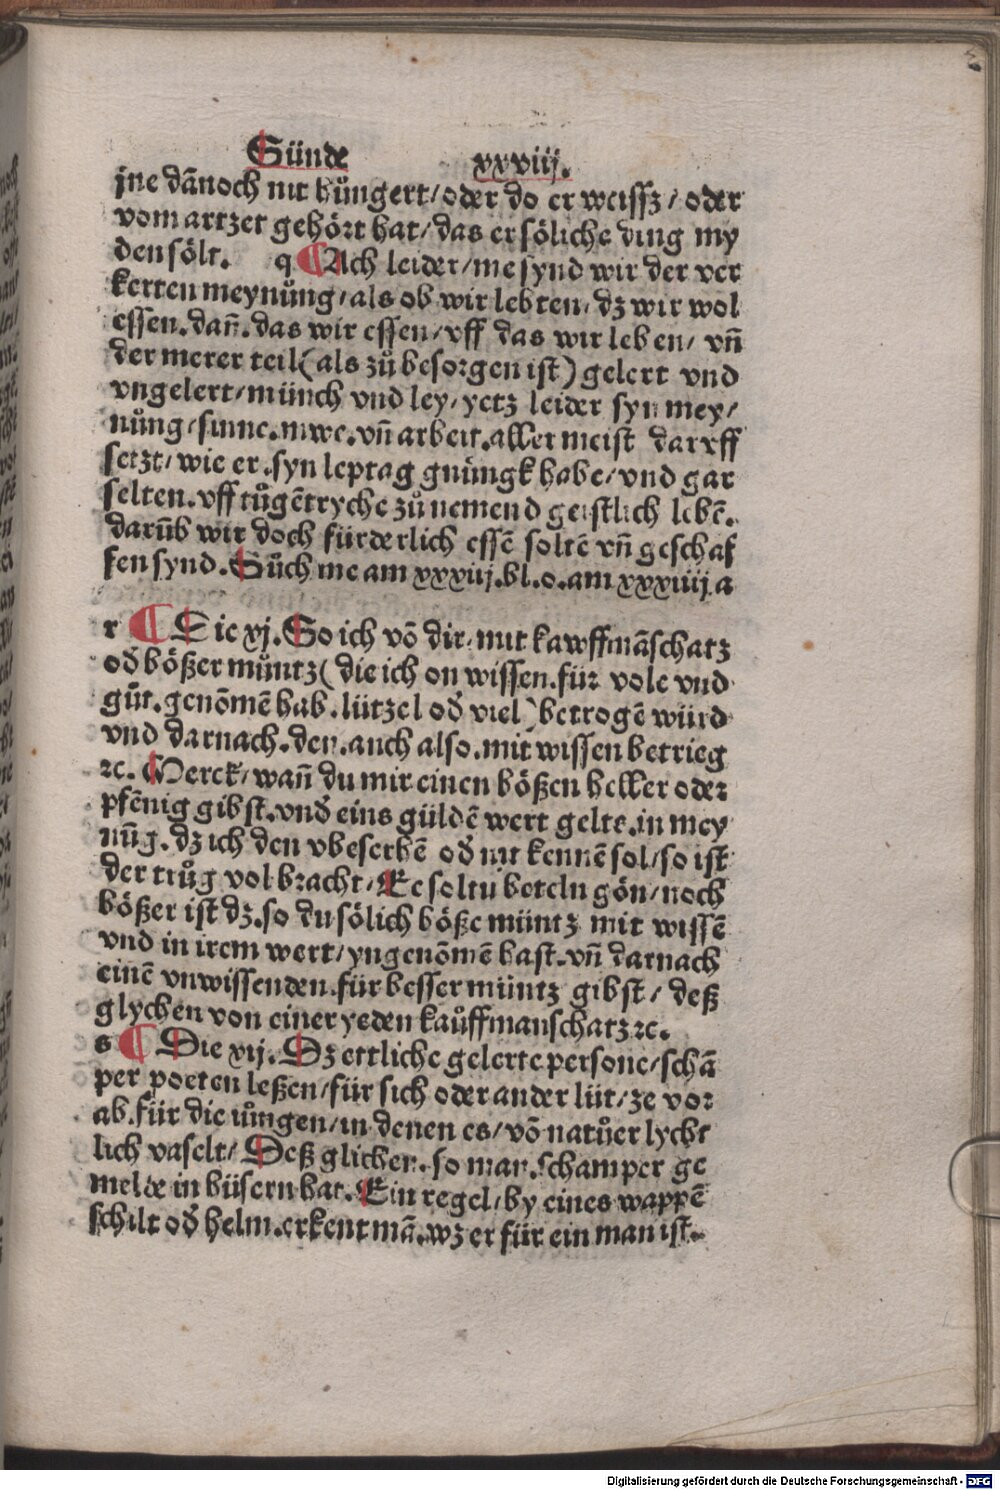 Sünde xxviij.
jne dãnoch nit hůngert/oder do er weissz/oder
vom artzet gehört hat/das er söliche ding my
den sölt. q ¶Ach leider/me synd wir der ver
kerten meynůng/als ob wir lebten/dz wir wol
essen.dañ.das wir essen/vff das wir leben/vñ
der merer teil(als zů besorgen ist)gelert vnd
vngelert/münch vnd ley/yetz leider syn mey/
nůng/sinne.mwe.vñ arbeit.aller meist darvff
setzt/wie er.syn leptag gnüngk habe/vnd gar
selten.vff tůgẽtryche zů nemend geistlich lebẽ.
darũb wir doch fürderlich essẽ soltẽ vñ geschaf
fen synd.Sůch me am xxxiij.bl.o.am xxxiiij.a
r ¶ Die xj.So ich võ dir.mit kawffmãschatz
od̃ bößer müntz(die ich on wissen.für vole vnd
gůt.genõmẽ hab.lützel od̃ viel)betrogẽ würd
vnd darnach.den.auch also.mit wissen betrieg
ꝛc.Merck/wañ du mir einen bößen heller oder
pfẽnig gibst.vnd̃ eins güldẽ wert gelte.in mey
nũg.dz ich den vbeserhẽ od̃ nit kennẽ sol/so ist
der trůg volbracht/Ee soltu beteln gön/noch
bößer ist dz.so du sölich böße müntz mit wissẽ
vnd in irem wert/yngenõmẽ hast.vñ darnach
einẽ vnwissenden.für besser müntz gibst/deß
glychen von einer yeden kaůffmanschatz ꝛc.
s ¶ Die xij.Dz ettliche gelerte persone/schã
per poeten leßen/für sich oder ander lüt/ze vor
ab.für die iůngen/in denen es/võ natůer lycht
lich vaselt/Deß glichen.so man.schamper ge
melde in hüsern hat.Ein regel/by eines wappẽ
schilt od̃ helm.erkent mã.wz er für ein man ist.
Digitalisierung gefördert durch die Deutsche Forschungsgemeinschaft - DFG